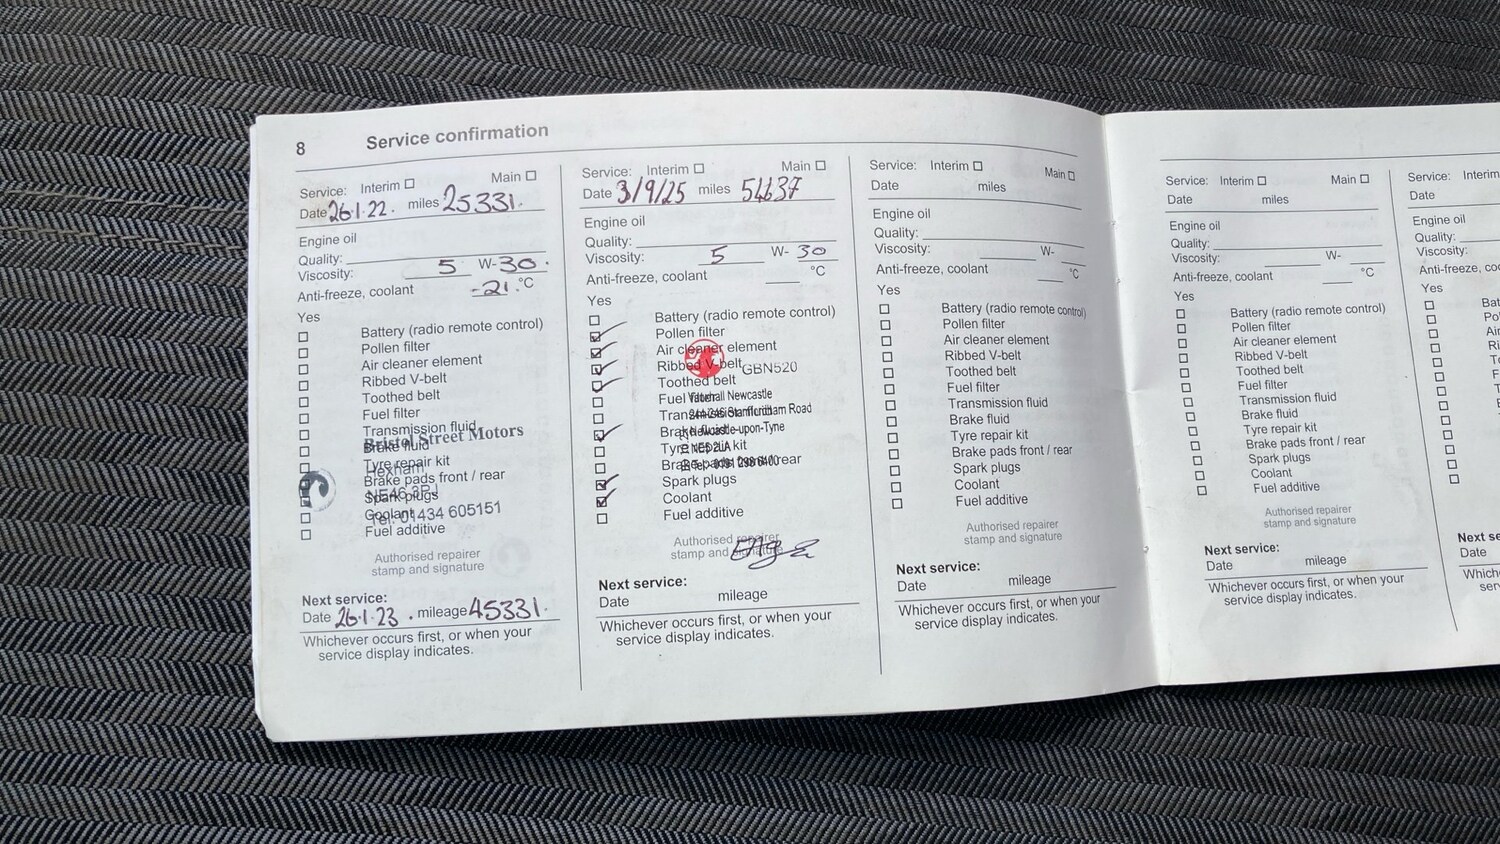 8 Service confirmation
Service: Interim ☐ Main ☐
Date 26.1.22. miles 25331.
Engine oil
Quality:
Viscosity: 5 W-30.
Anti-freeze, coolant -21.°C
Yes
Battery (radio remote control)
Pollen filter
Air cleaner element
Ribbed V-belt
Toothed belt
Fuel filter
Transmission fluid
Bristol Street Motors
Brake fluid
Tyre repair kit
Hexham
Brake pads front / rear
NE46
Spark plugs
Coolant
Tel: 01434 605151
Fuel additive
Authorised repairer
stamp and signature
Next service:
Date 26.1.23. mileage 45331.
Whichever occurs first, or when your
service display indicates.
Service: Interim ☐ Main ☐
Date 3/9/25 miles
Engine oil
Quality:
Viscosity: 5 W-30
Anti-freeze, coolant °C
Yes
Battery (radio remote control)
Pollen filter
Air cleaner element
Ribbed V-belt
GBN520
Toothed belt
Fuel
Vauxhall Newcastle
Road
Brake fluid
Newcastle-upon-Tyne
Tyre repair kit
Brake pads front / rear
Spark plugs
Coolant
Fuel additive
Authorised repairer
stamp and signature
Next service:
Date mileage
Whichever occurs first, or when your
service display indicates.
Service: Interim ☐ Main ☐
Date miles
Engine oil
Quality:
Viscosity: W-
Anti-freeze, coolant °C
Yes
Battery (radio remote control)
Pollen filter
Air cleaner element
Ribbed V-belt
Toothed belt
Fuel filter
Transmission fluid
Brake fluid
Tyre repair kit
Brake pads front / rear
Spark plugs
Coolant
Fuel additive
Authorised repairer
stamp and signature
Next service:
Date mileage
Whichever occurs first, or when your
service display indicates.
Service: Interim ☐ Main ☐
Date miles
Engine oil
Quality:
Viscosity: W-
Anti-freeze, coolant °C
Yes
Battery (radio remote control)
Pollen filter
Air cleaner element
Ribbed V-belt
Toothed belt
Fuel filter
Transmission fluid
Brake fluid
Tyre repair kit
Brake pads front / rear
Spark plugs
Coolant
Fuel additive
Authorised repairer
stamp and signature
Next service:
Date mileage
Whichever occurs first, or when your
service display indicates.
Service: Interim
Date
Engine oil
Quality:
Viscosity:
Anti-freeze, coo
Yes
Bat
Po
Air
Ri
To
F
T
Next se
Date
Which
ser